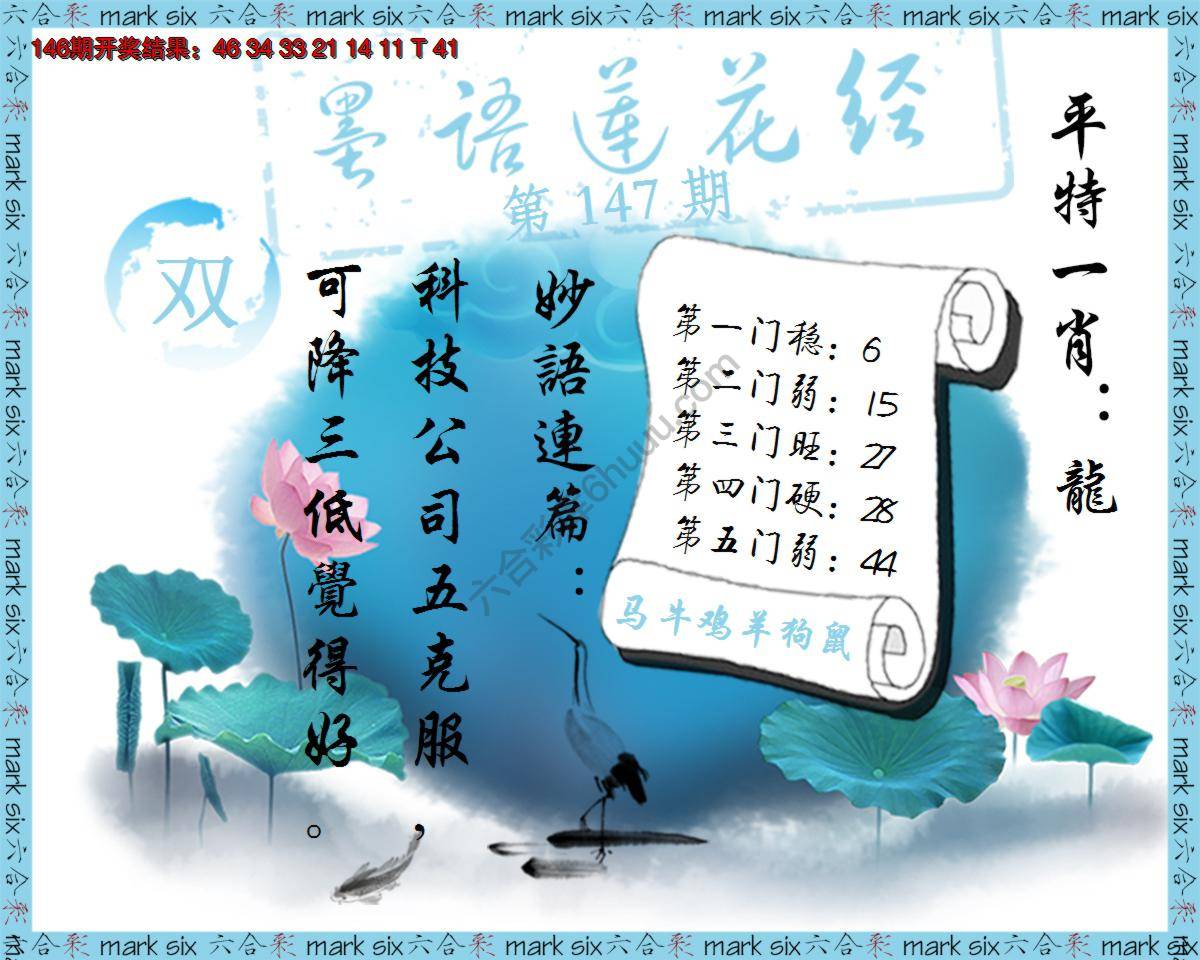 六合彩 mark six 六合彩 mark six 六合彩 mark six 六合彩 mark six 六合彩 mark six 六合彩 mark six
146期开奖结果：46 34 33 21 14 11 T 41
墨語莲花经
第 147 期
双
平特一肖：龍
妙語連篇：
科技公司五克服，
可降三低覺得好。
第一门稳：6
第二门弱：15
第三门旺：27
第四门硬：28
第五门弱：44
马牛鸡羊狗鼠
六合彩 mark six 六合彩 mark six 六合彩 mark six 六合彩 mark six 六合彩 mark six 六合彩 mark six